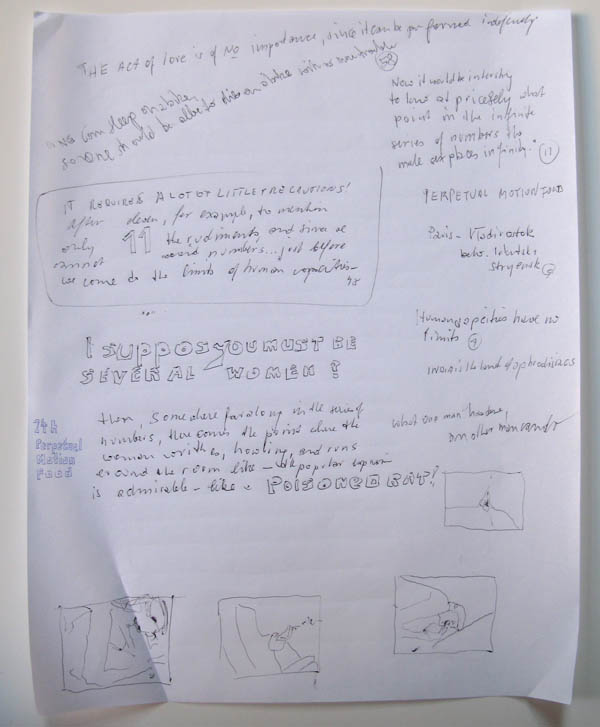 THE ACT of love is of NO importance, since it can be performed indefinitely.
"No can sleep on a bike,
so one should be able to
Now it would be interesting
to know at pricesely what
point in the infinite
series of numbers the
male explaces infinity." 17
IT REQUIRES A LOT OF LITTLE PRECAUTIONS!
After eleven, for example, to mention
only 11 the rudiments, and since we
cannot
numbers... just before
we come to the limits of human capacities
48
...
PERPETUAL MOTION FOOD
Paris - Vladivostok
Irkutsk
Human capacities have no
limits
INDIA is the land of aphrodisiacs
I SUPPOSE YOU MUST BE
SEVERAL WOMEN?
then, somewhere far along in the series of
numbers, there comes the point where the
woman writhes, howling, and runs
around the room like - the popular expression
is admirable - like a POISONED RAT?
What one man has done,
another man can do
74h
Perpetual
Motion
Food